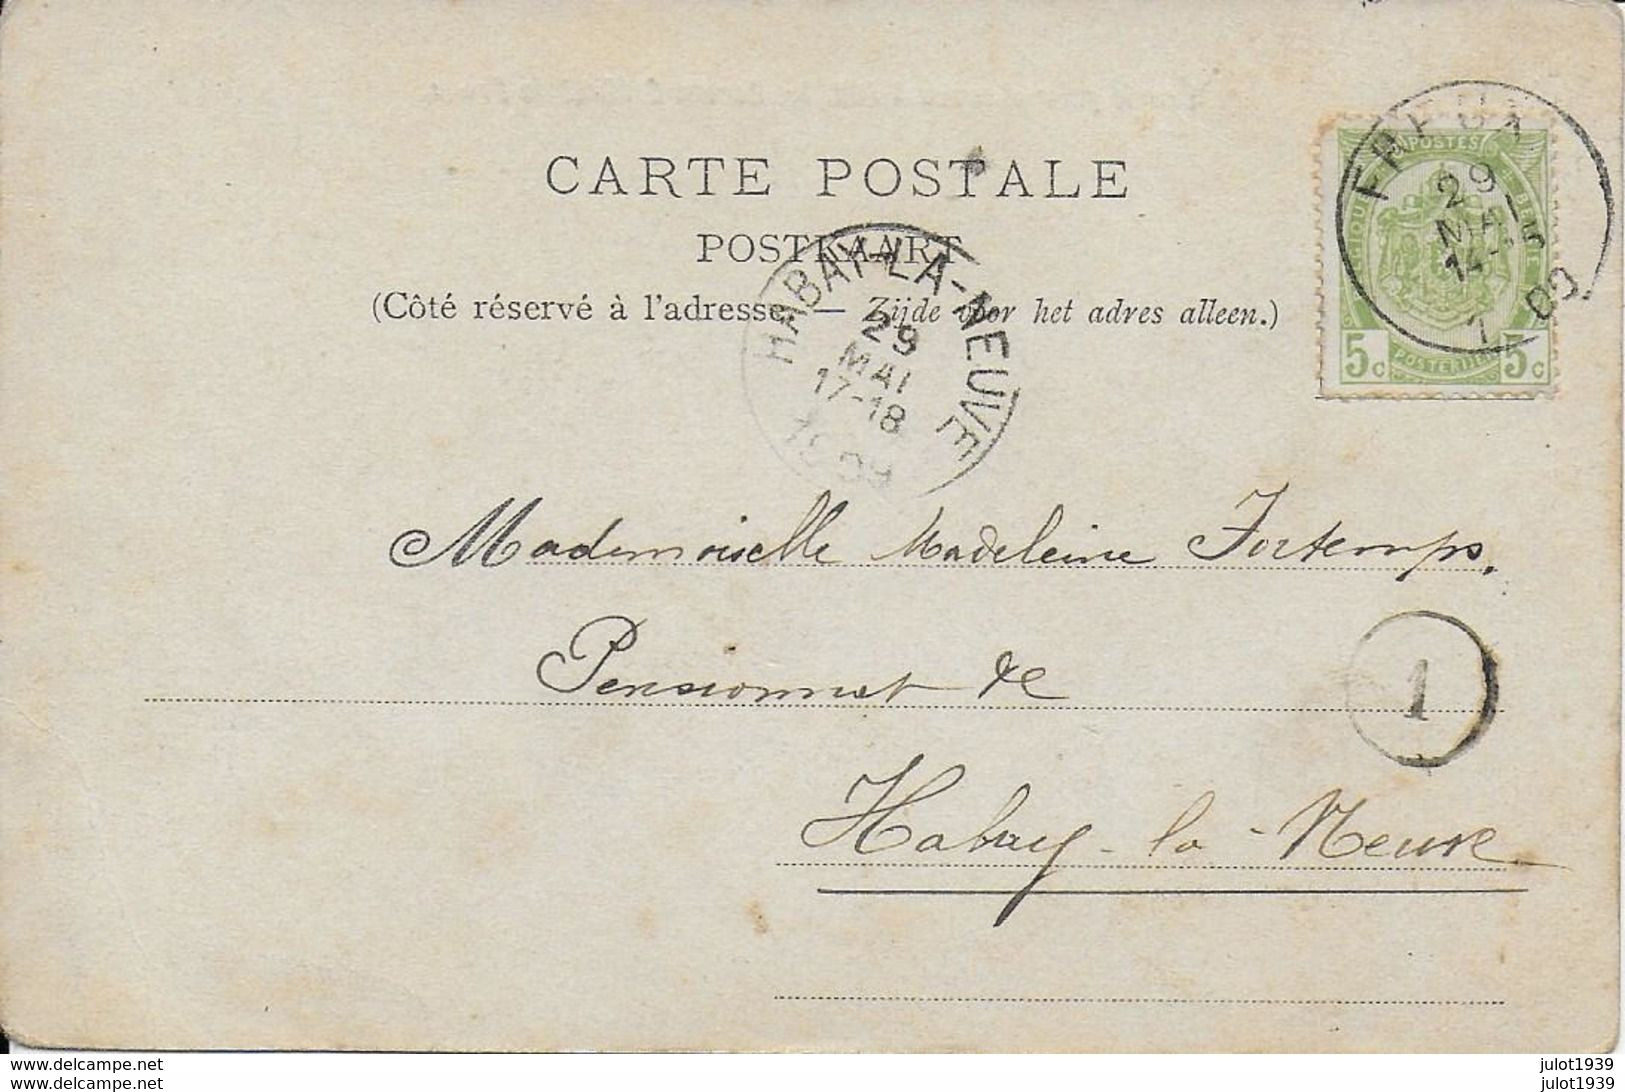 CARTE POSTALE
POSTKAART
(Côté réservé à l'adresse — Zijde voor het adres alleen.)
POSTES
29
MAI
14-15
5c POSTERIJEN 5c
HABAY-LA-NEUVE
29
MAI
17-18
1909
Mademoiselle Madeleine Fortemps,
Pensionnat de
1
Habay-la-Neuve
delcampe.net julot1939
delcampe.net julot1939